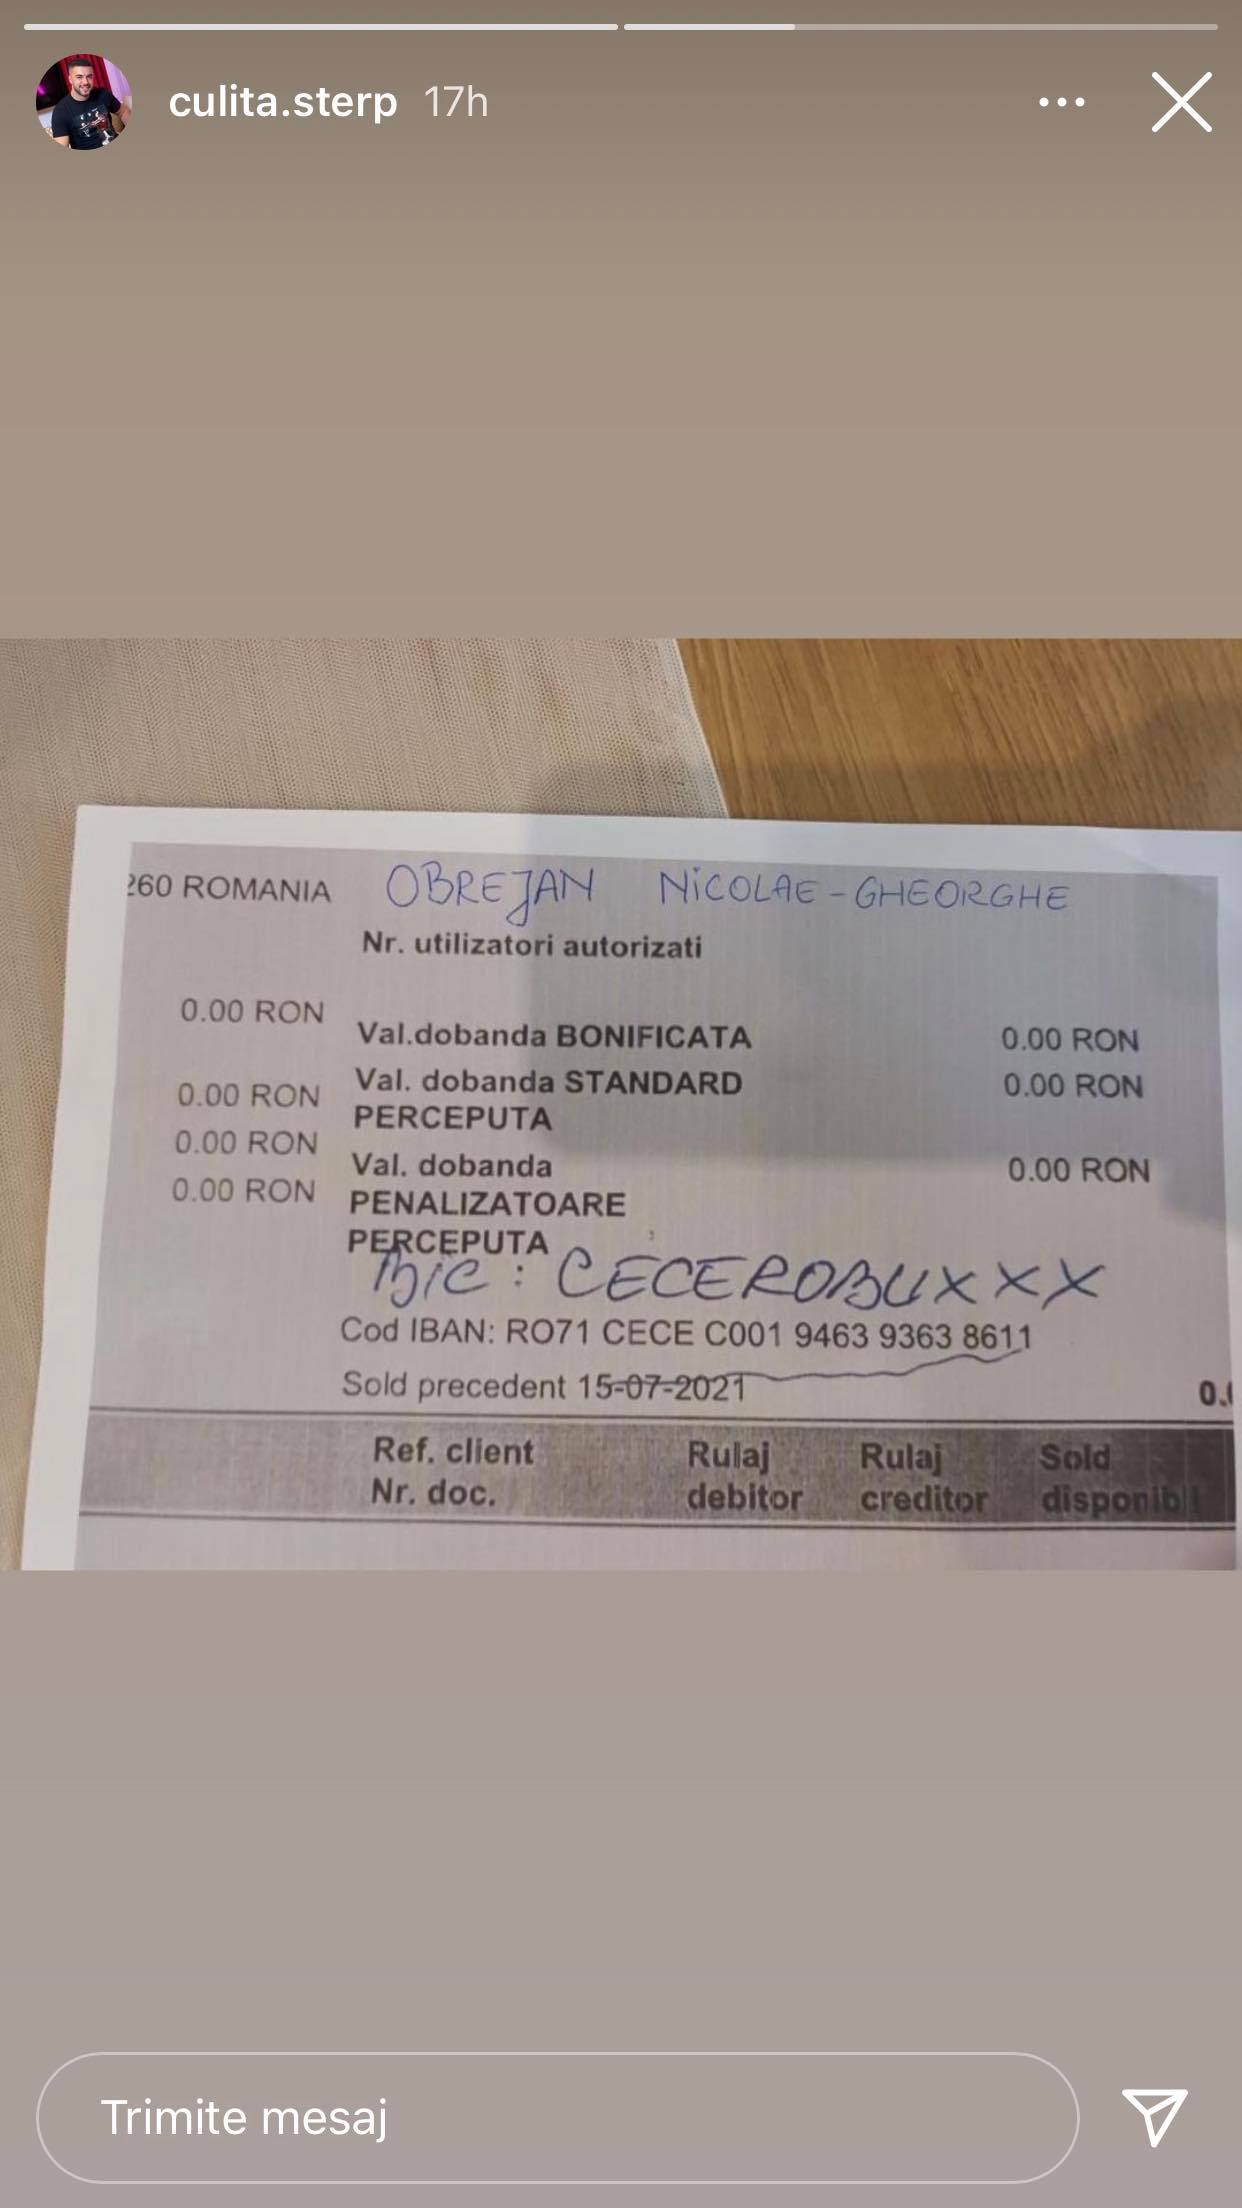 culita.sterp 17h
260 ROMANIA OBREJAN NICOLAE-GHEORGHE
Nr. utilizatori autorizati
0.00 RON
Val.dobanda BONIFICATA 0.00 RON
0.00 RON Val. dobanda STANDARD 0.00 RON
PERCEPUTA
0.00 RON
Val. dobanda 0.00 RON
0.00 RON PENALIZATOARE
PERCEPUTA
Bic: CECEROBUXXX
Cod IBAN: RO71 CECE C001 9463 9363 8611
Sold precedent 15-07-2021
Ref. client Rulaj Rulaj Sold
Nr. doc. debitor creditor disponibil
Trimite mesaj